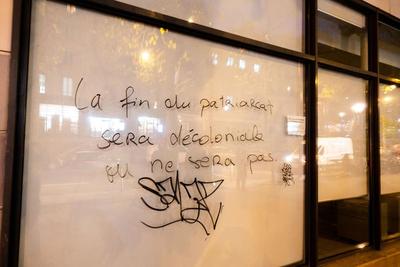 La fin du patriarcat
sera décoloniale
ou ne sera pas.